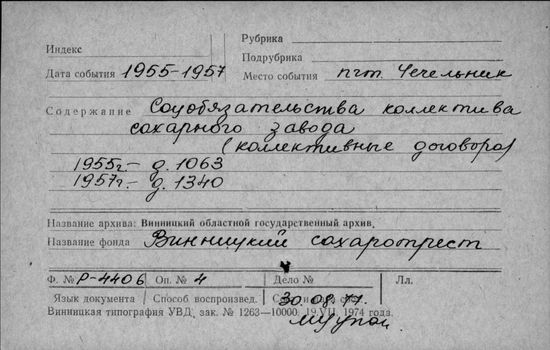 Рубрика
Индекс
Подрубрика
Дата события 1955-1957 Место события пгт. Чечельник
Содержание Соцобязательства коллектива
сахарного завода
(коллективные договора)
1955г.- д. 1063
1957г.- д. 1340
Название архива: Винницкий областной государственный архив
Название фонда Винницкий сахаротрест
Ф. № Р-4406 Оп. № 4 Дело № Лл.
Язык документа Способ воспроизвед. 30.08.77.
Винницкая типография УВД, зак. № 1263—10000. 19.VII. 1974 года.